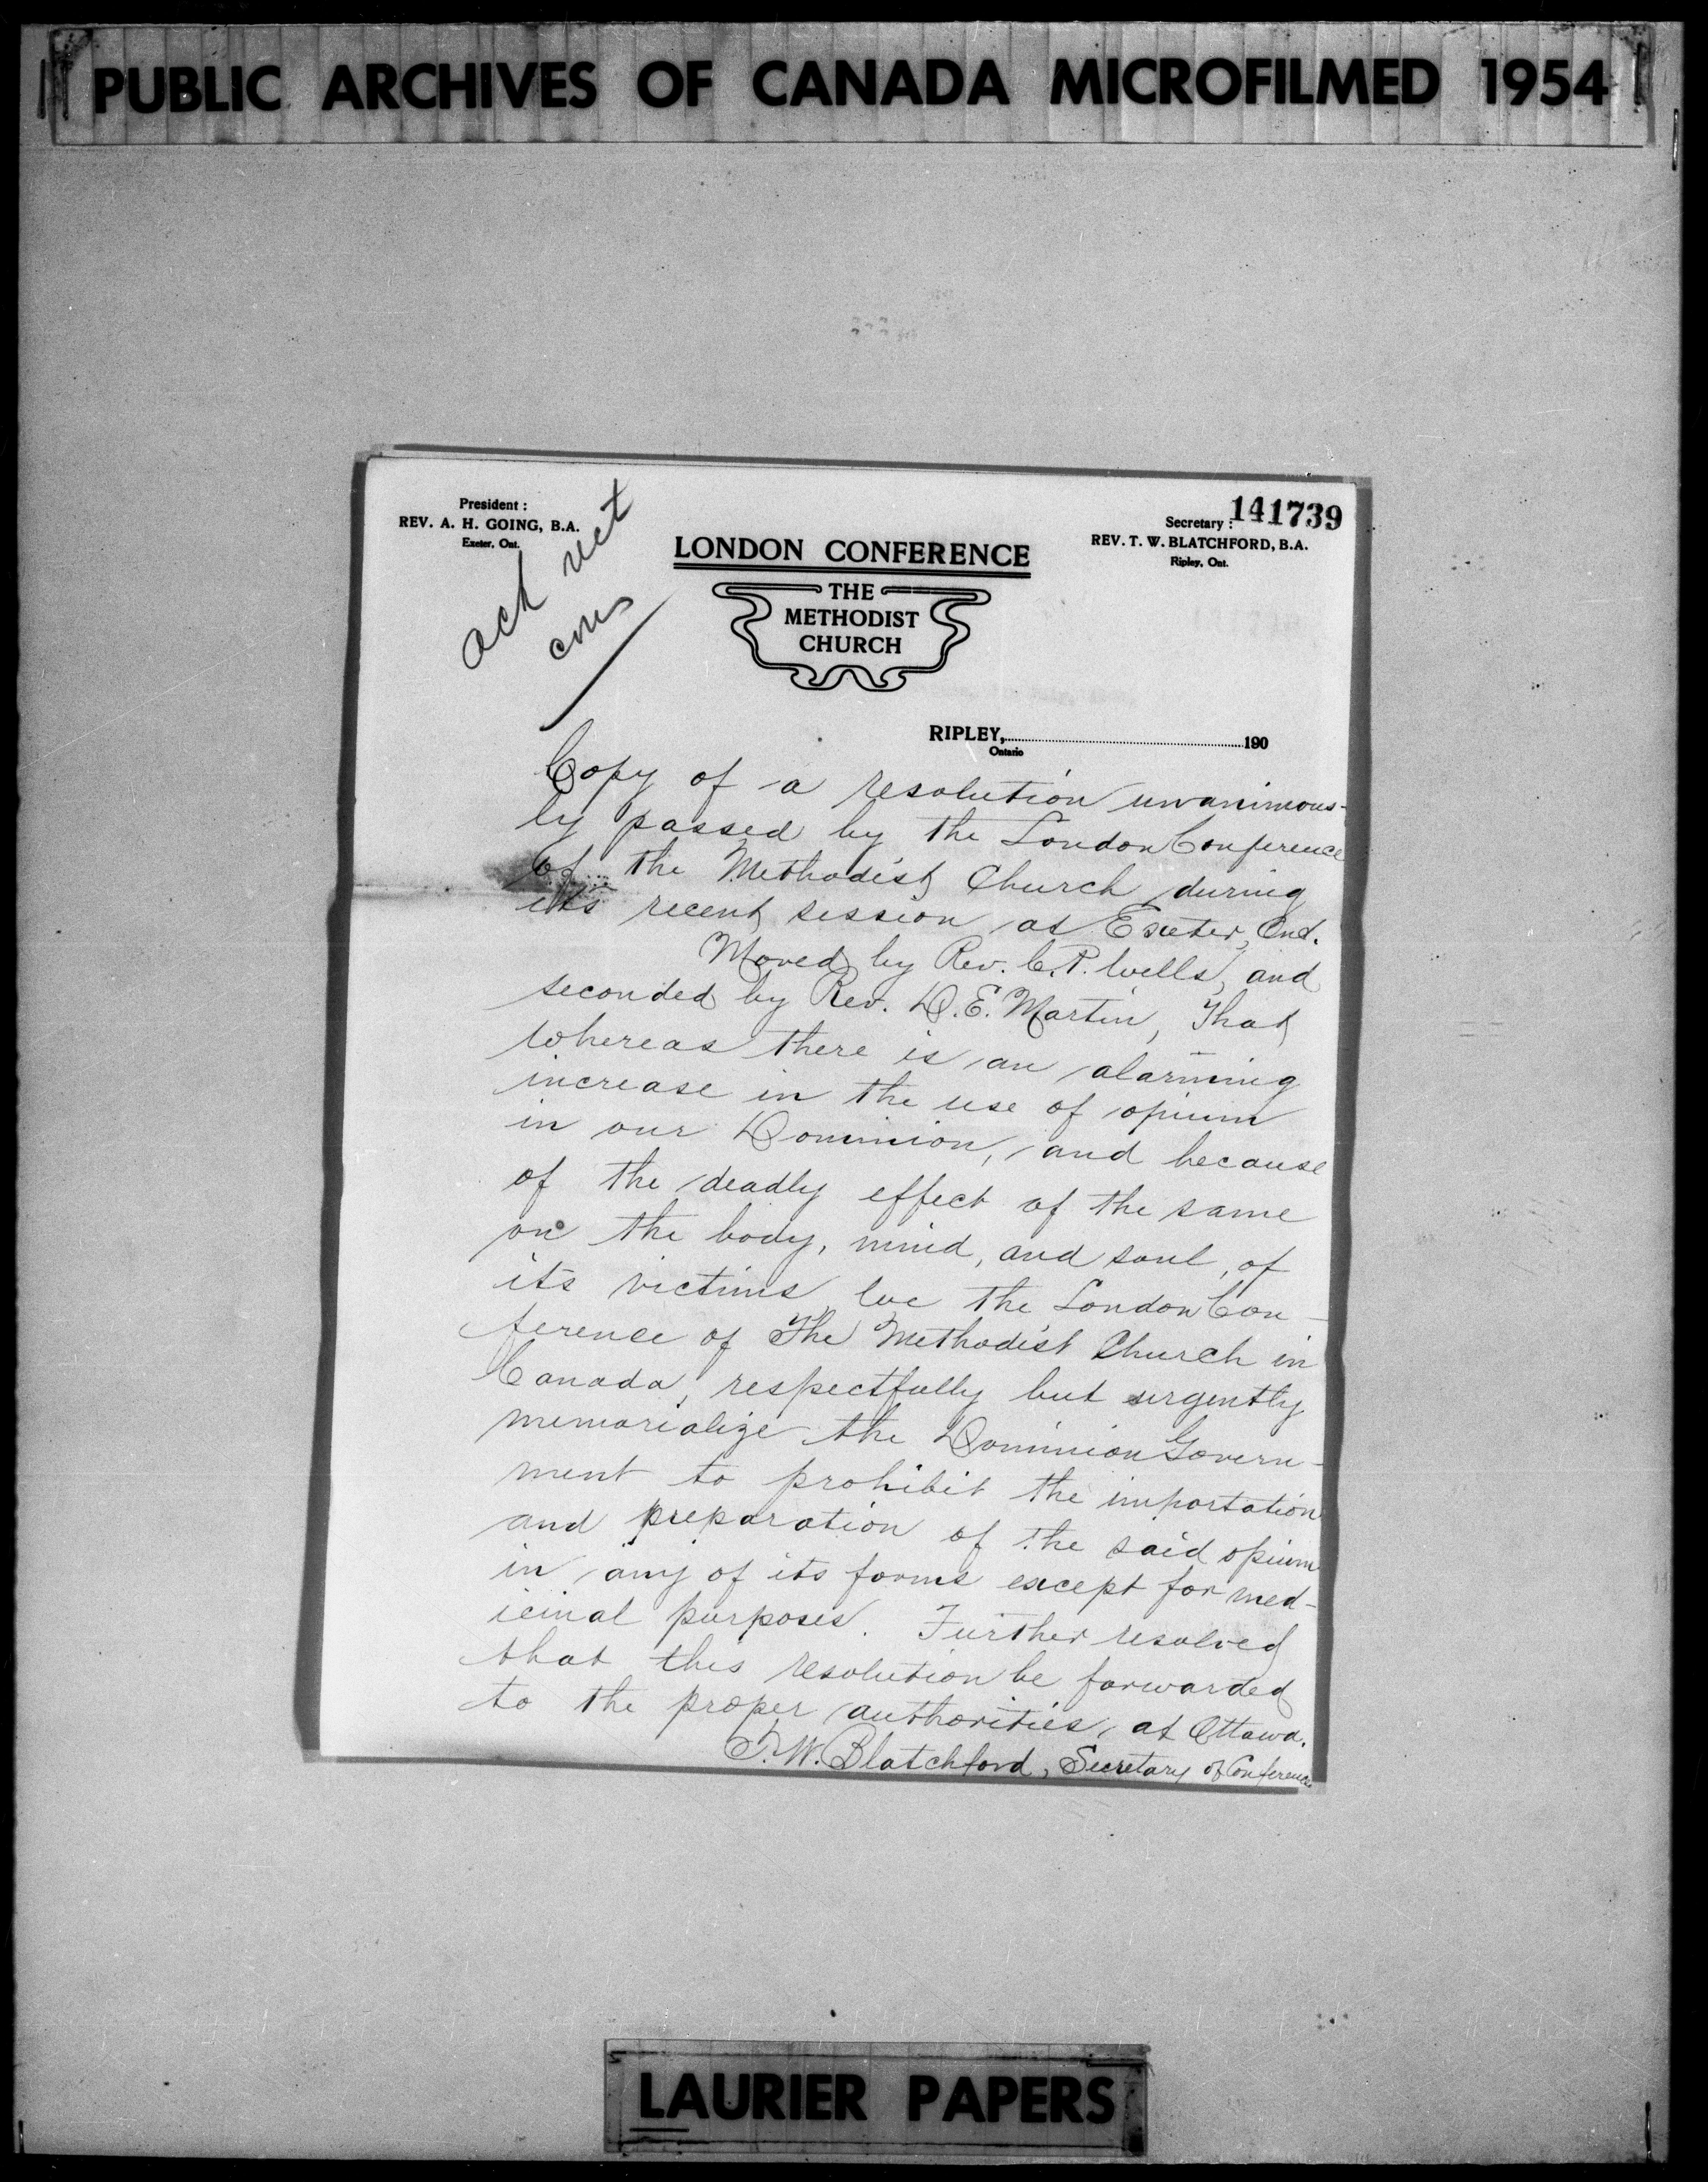 PUBLIC ARCHIVES OF CANADA MICROFILMED 1954
141739
President :
REV. A. H. GOING, B.A.
Exeter, Ont.
Secretary :
REV. T. W. BLATCHFORD, B.A.
Ripley, Ont.
ack
LONDON CONFERENCE
THE
METHODIST
CHURCH
RIPLEY, 190
Ontario
Copy of a resolution unanimous-
ly passed by the London Conference
of the Methodist Church during
its recent session at Exeter, Ont.
Moved by Rev. C. P. Wells, and
seconded by Rev. D. E. Martin, That
whereas there is an alarming
increase in the use of opium
in our Dominion, and because
of the deadly effect of the same
on the body, mind, and soul, of
its victims we the London Con-
ference of The Methodist Church in
Canada, respectfully but urgently
memorialize the Dominion Govern-
ment to prohibit the importation
and preparation of the said opium
in any of its forms except for med-
icinal purposes. Further resolved
that this resolution be forwarded
to the proper authorities, at Ottawa.
T. W. Blatchford, Secretary of Conference
LAURIER PAPERS